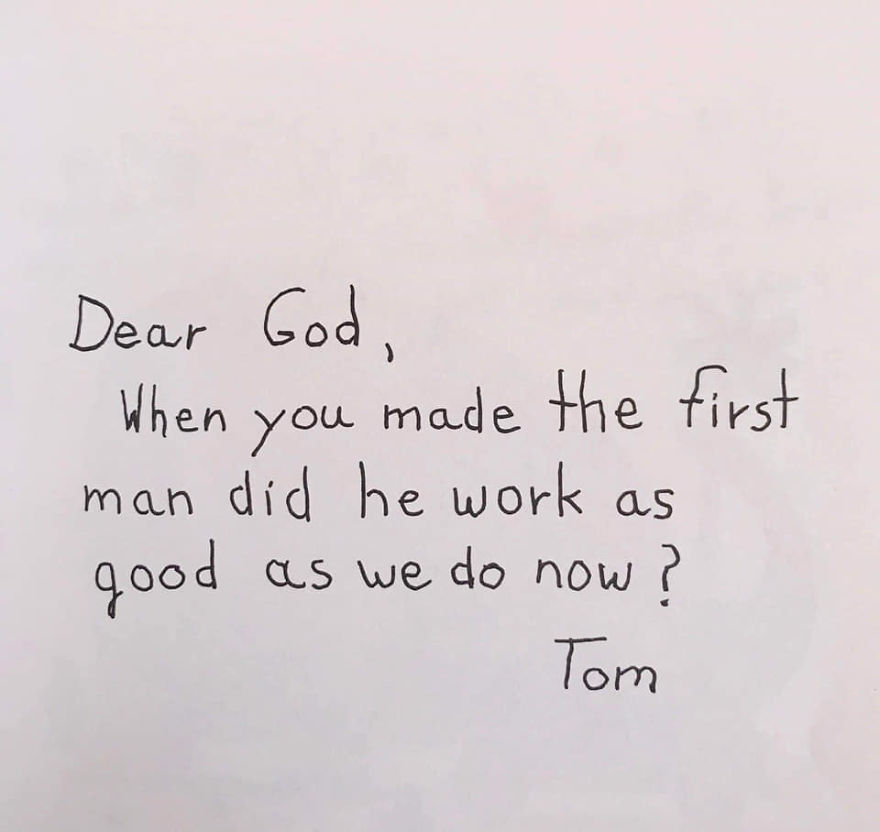 Dear God,
When you made the first
man did he work as
good as we do now?
Tom